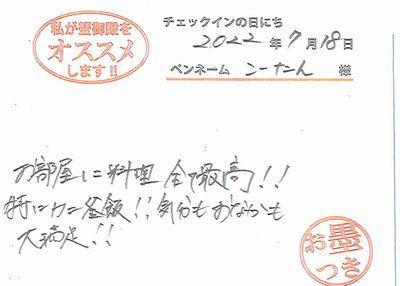 私が蟹御殿を
オススメ
します!!
チェックインの日にち
2022年7月18日
ペンネーム こーたん 様
お部屋に料理 全て最高!!
特にカニ釜飯!!気分もおなかも
大満足!!
お墨
つき